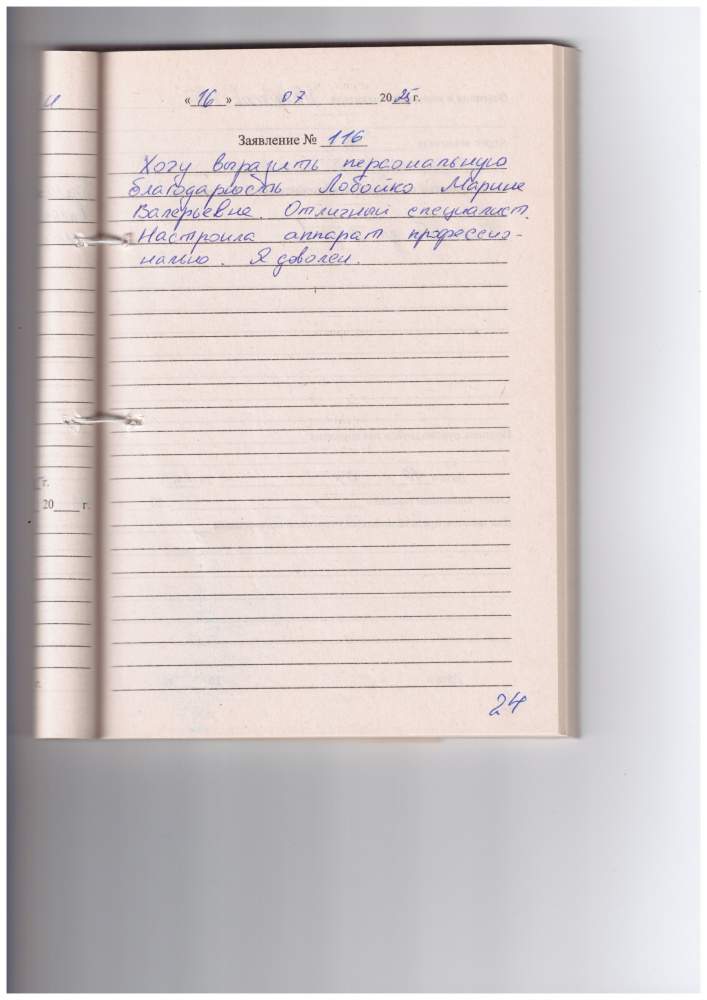 « 16 » 07 2025 г.
Заявление № 116
Хочу выразить персональную
благодарность Лобойко Марине
Валерьевне. Отличный специалист.
Настроила аппарат профессио-
нально. Я доволен.
г.
20 г.
24